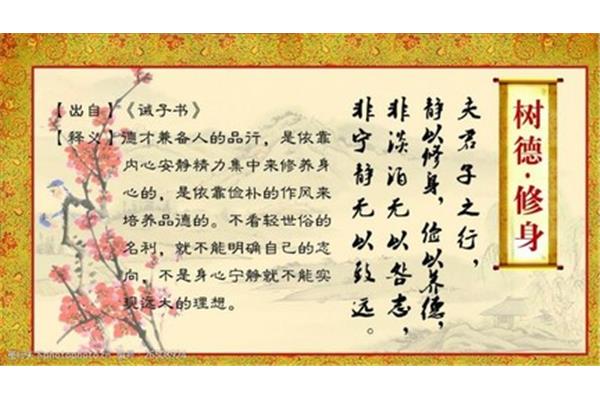 树德·修身
夫君子之行，
静以修身，俭以养德，
非淡泊无以明志，
非宁静无以致远。
【出自】《诫子书》
【释义】德才兼备人的品行，是依靠
内心安静精力集中来修养身
心的，是依靠俭朴的作风来
培养品德的。不看轻世俗的
名利，就不能明确自己的志
向，不是身心宁静就不能实
现远大的理想。